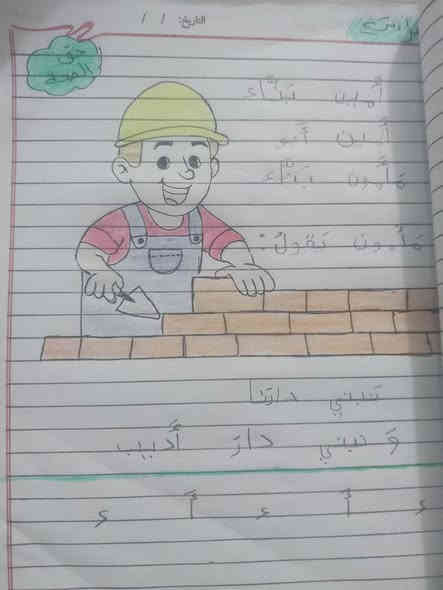 التاريخ: / /
أمين بنّاء
أمين أبو
مأمون بنّاء
مأمون يقولُ:
نبني دارنا
وَ نبني دارَ أَديب
ء أَ ء أَ ء